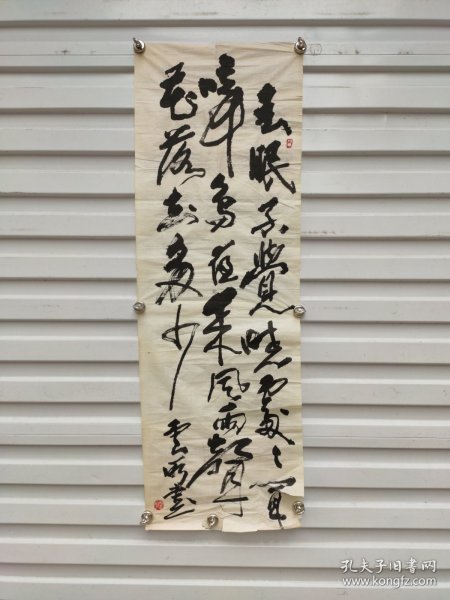 春眠不覺曉處處聞
啼鳥夜來風雨聲
花落知多少
雲昕書
孔夫子旧书网
www.kongfz.com